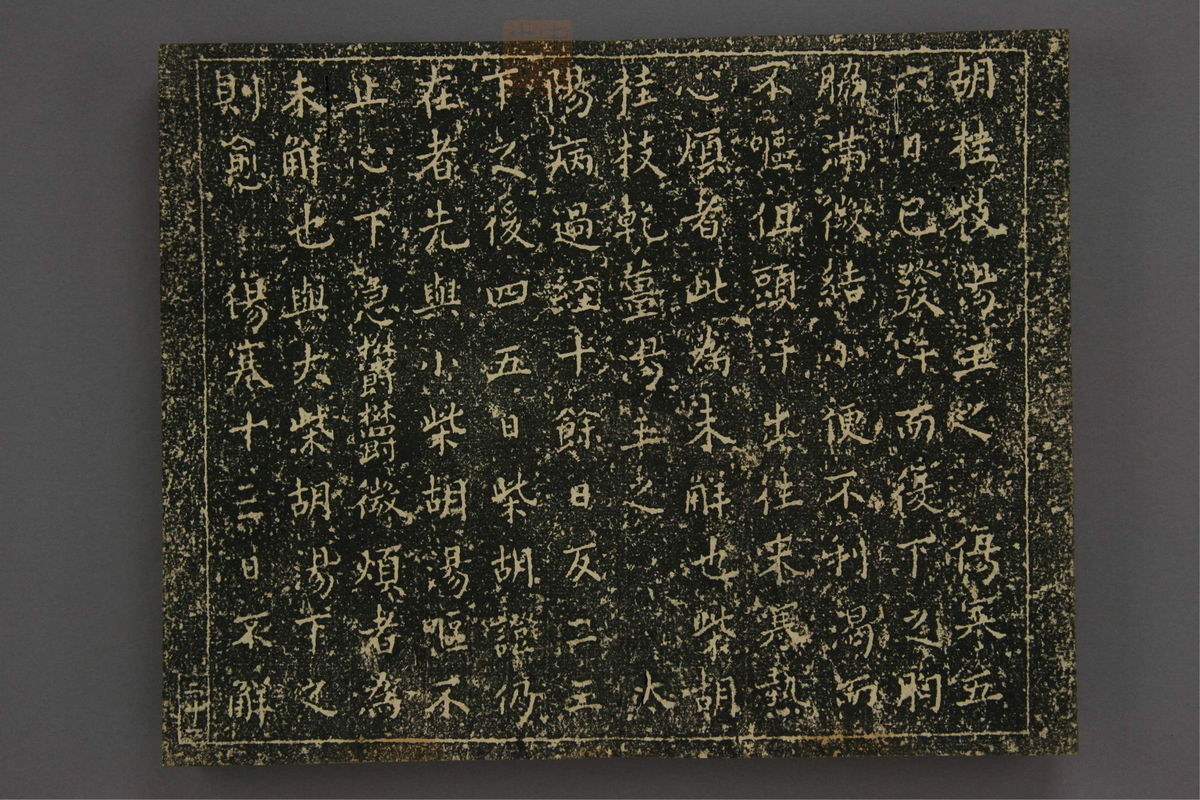 胡桂枝湯主之　傷寒五
六日已發汗而復下之胷
脇滿微結小便不利渴而
不嘔但頭汗出往来寒熱
心煩者此為未解也柴胡
桂枝乾薑湯主之　太
陽病過經十餘日反二三
下之後四五日柴胡證仍
在者先與小柴胡湯嘔不
止心下急鬱鬱微煩者為
未解也與大柴胡湯下之
則愈　傷寒十三日不解